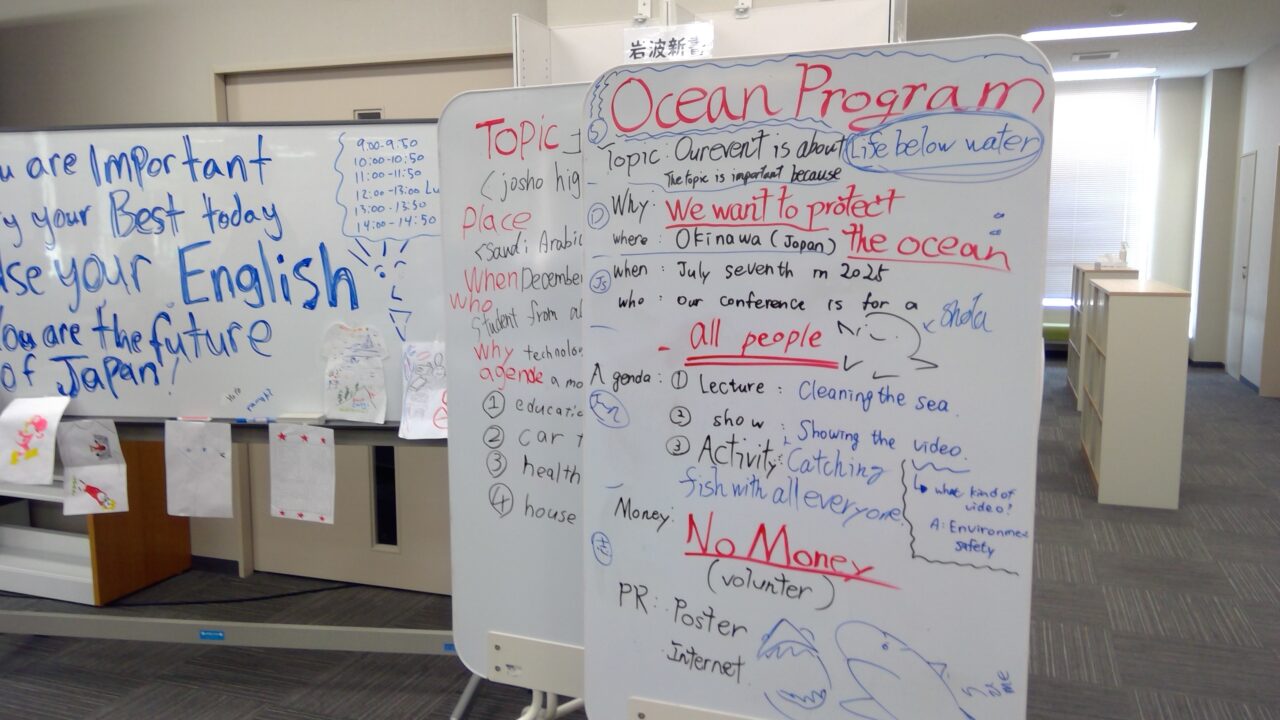 岩波新書
u are Important
y your Best today
se your English
You are the future
of Japan!
9:00-9:50
10:00-10:50
11:00-11:50
12:00-13:00 Lu
13:00-13:50
14:00-14:50
Topic
(josho hig
Place
<Saudi Arabic
When December
who
Student from al
why technolo
agenda a mo
① educatic
② car
③ health
④ house
Ocean Program
Topic: Our event is about Life below water
The topic is important because
Why: We want to protect
the ocean
where: Okinawa (Japan)
when: July seventh in 2025
who: our conference is for a
all people
shota
Agenda: ① Lecture: Cleaning the sea.
② show: Showing the video.
③ Activity: Catching
fish with all everyone.
what kind of
video?
A: Environme
safety
Money: No Money
(volunter)
PR: Poster
Internet